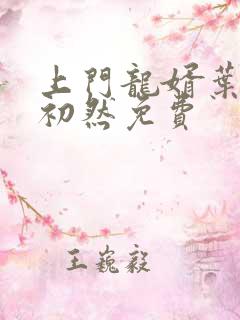 上門龍婿葉
初然免費
王巍毅